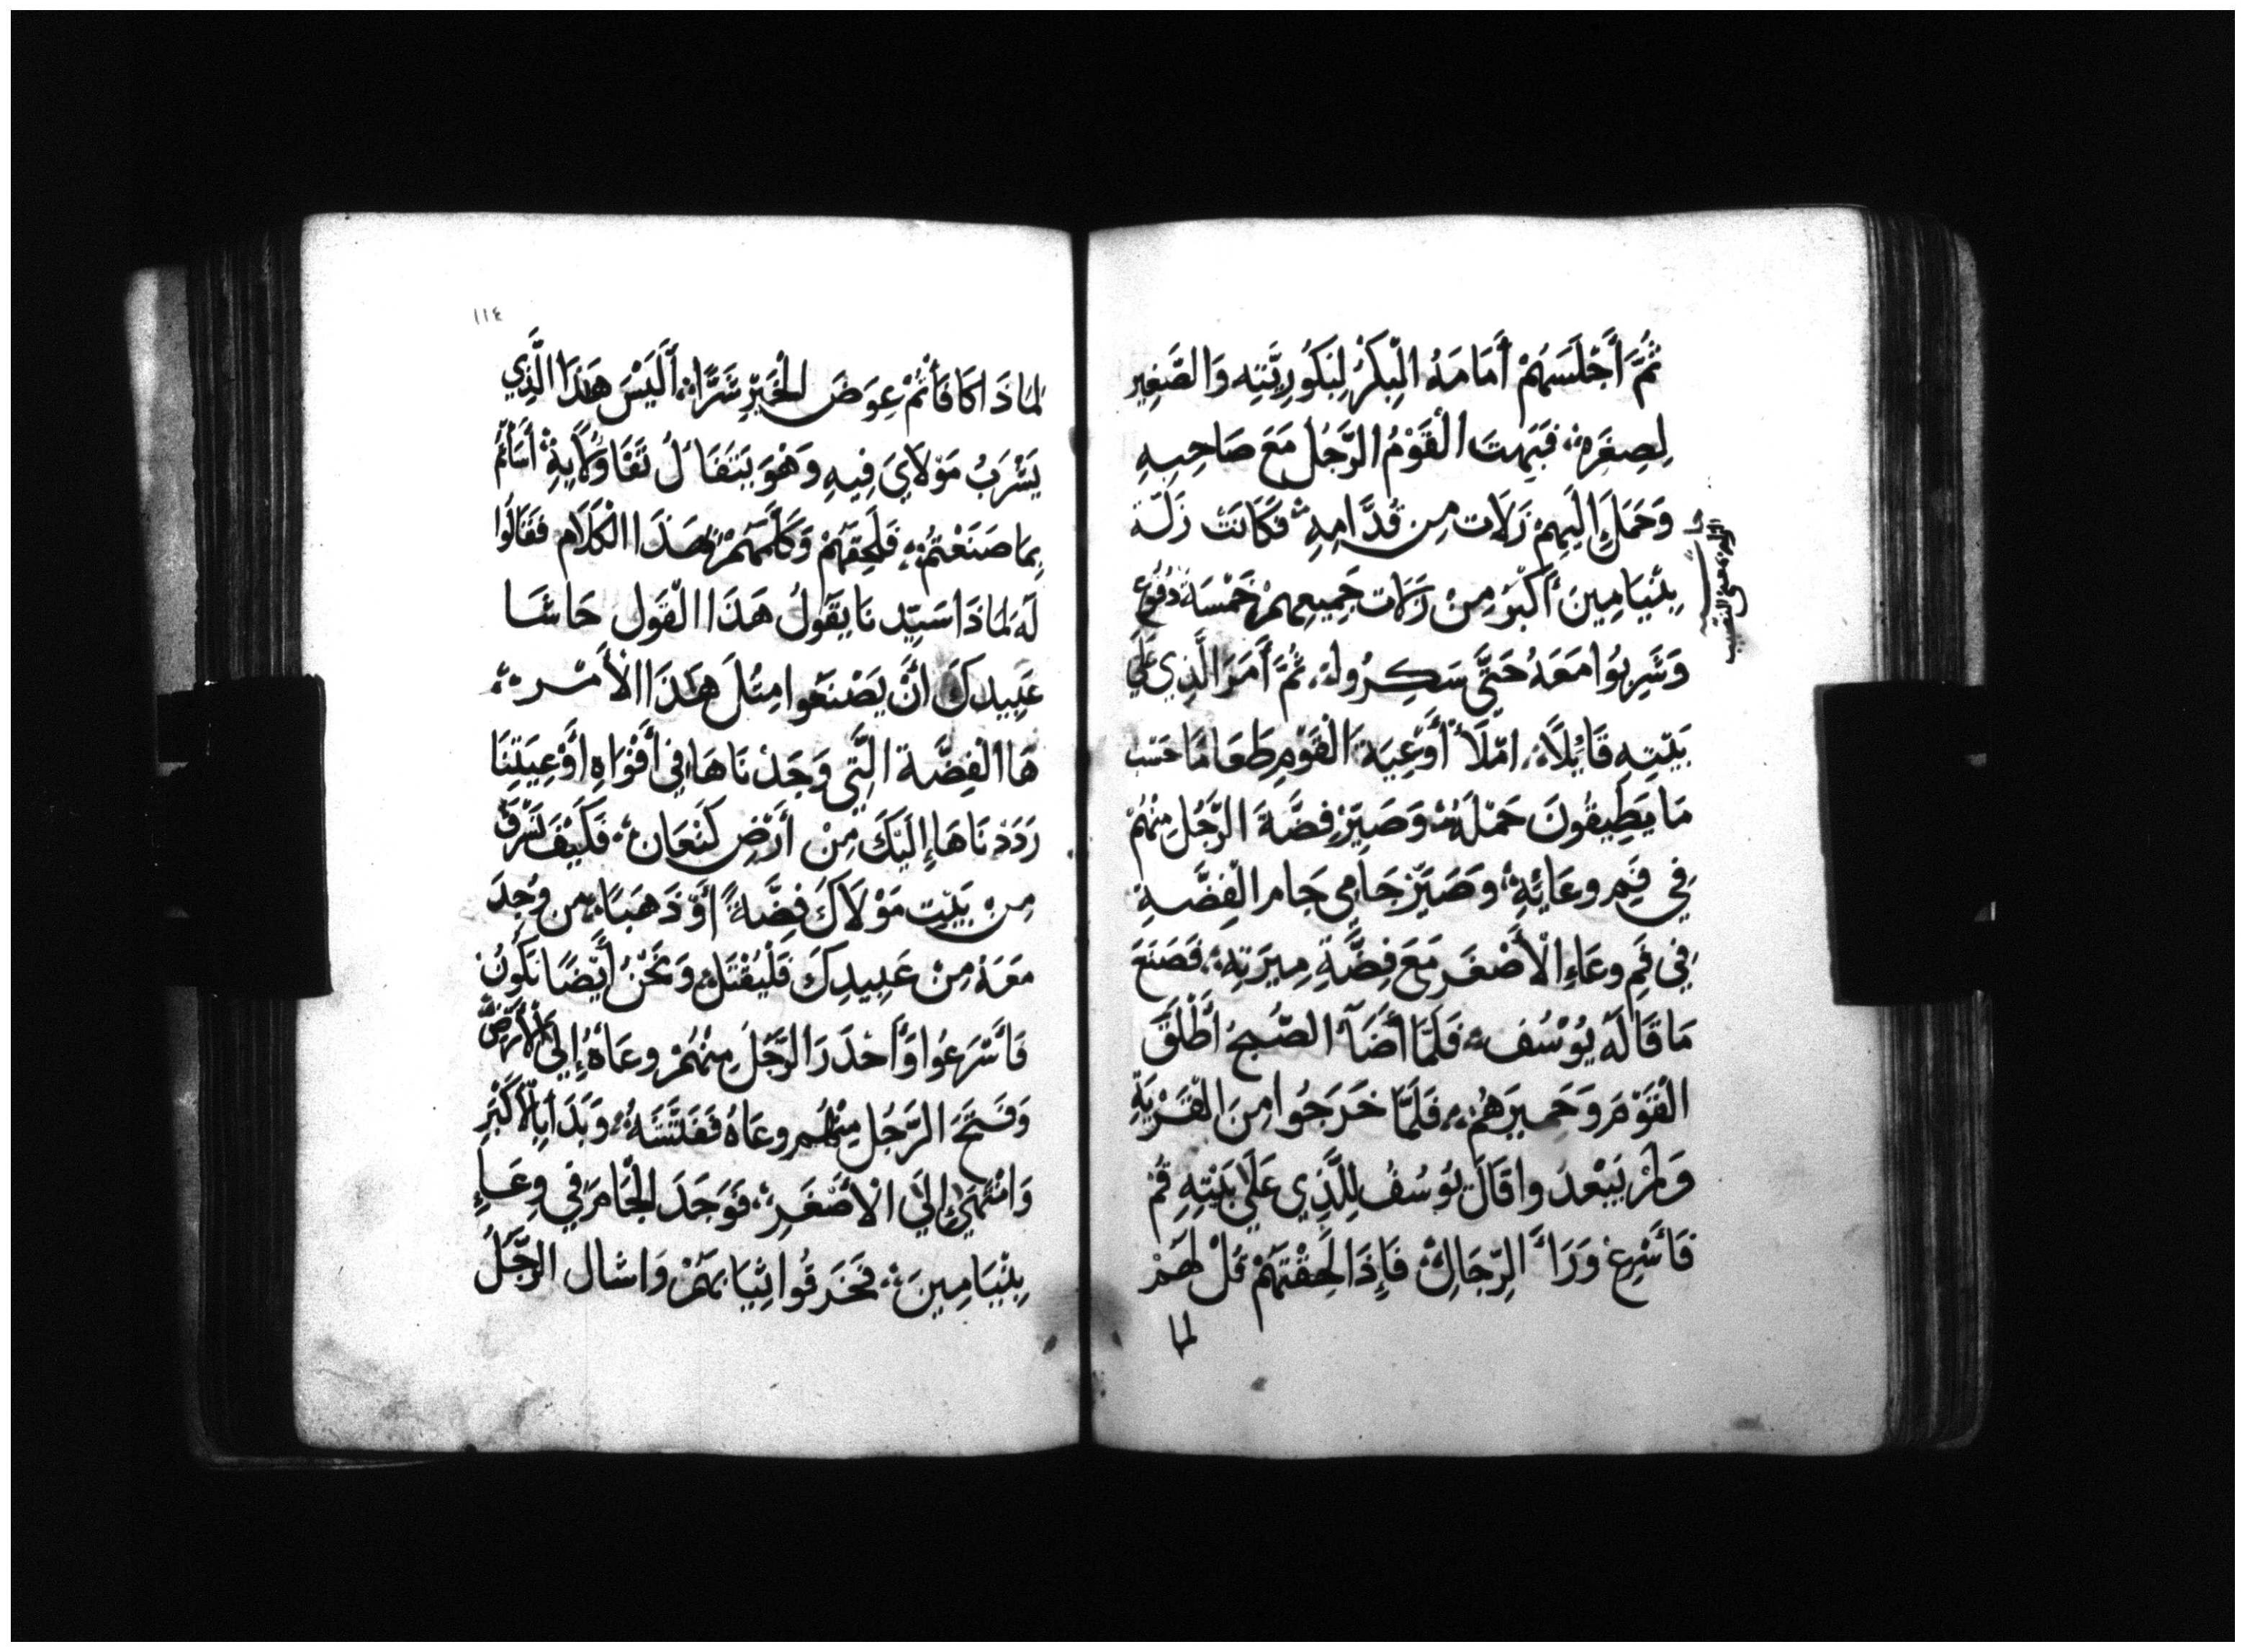 ثُمَّ أَجْلَسَهُمْ أَمَامَهُ الْبِكْرُ لِبَكُورِيَّتِهِ وَالصَّغِيرِ
لِصِغَرِهِ فَبَهِتَ الْقَوْمُ الرَّجُل مَعَ صَاحِبِهِ
وَحَمَلَ إِلَيهِمْ زَلَات مِن قُدَّامِهِ فَكَانَتْ زَلَّة
بِنْيَامِينَ أَكْبَرُ مِنْ زَلَات جَمِيعِهِمْ خَمْسَة دُفُوع
وَشَرِبُوا مَعَهُ حَتَّى سَكِرُوا ثُمَّ أَمَرَ الَّذِي عَلَي
بَيْتِهِ قَايُلًا امْلَأْ أَوْعِيَة الْقَوْمِ طَعَامًا حَسَب
مَا يَطِيقُونَ حَمْلَهُ وَصَيِّرْ فِضَّةَ الرَّجُلِ مِنْهُمْ
فِي فَمِ وعَائِهِ وَصَيِّرْ جَامِي جَام الْفِضَّةِ
فِي فَمِ وعَاءِ الْأَصْغَر مَعَ فِضَّةِ مِيرَتِهِ فَصَنَعَ
مَا قَالَهُ يُوسُف فَلَمَّا أَضَآ الصُّبحُ أَطْلَقَ
الْقَوْمَ وَحَمِيرَهُمْ فَلَمَّا خَرَجُوا مِنَ الْقَرْيَةِ
وَلَمْ يَبْعدُوا قَالَ يُوسُفُ لِلَّذِي عَلَي بَيْتِهِ قُمْ
فَأَسْرِعْ وَرَاءَ الرِّجَالِ فَإِذَا لَحِقْتَهُمْ قُلْ لَهُمْ
لما
١١٤
لِمَاذَا كَافَأْتُمْ عِوَضَ الْخَيْرِ شَرًّا أَلَيْسَ هَذَا الَّذِي
يَشْرَبُ مَوْلَايَ فِيهِ وَهُوَ يَتَفَاءَلُ تَفَاوُلًا بِهِ أَسَأْتُمْ
بِمَا صَنَعْتُمْ فَلَحِقَهُمْ وَكَلَّمَهُمْ بِهَذَا الْكَلَام فَقَالُوا
لَهُ لِمَاذَا سَيِّدنَا يَقُولُ هَذَا الْقَول حَاشَا
عَبِيدكَ أَنْ يَصْنَعُوا مِثْلَ هَذَا الْأَمْر
هَا الْفِضَّة الَّتِي وَجَدْنَاهَا فِي أَفْوَاهِ أَوْعِيَتِنَا
رَدَدْنَاهَا إِلَيْكَ مِنْ أَرْضِ كَنْعَان فَكَيْفَ نَسْرِق
مِنْ بَيْت مَوْلَاكَ فِضَّةً أَوْ ذَهَبًا مَن وُجِدَ
مَعَهُ مِنْ عَبِيدِكَ فَلْيُقْتَلْ وَنَحْنُ أَيْضًا نَكُونُ
فَأَسْرَعُوا وَأَحْدَرَ الرَّجُلِ مِنْهُمْ وعَاهُ إِلَى الْأَرْضِ
وَفَتَحَ الرَّجُل مِنْهُم وعَاهُ فَفَتَّشَهُ وَبَدَا بِالْأَكْبَرِ
وَانْتَهَي إِلَي الْأَصْغَرِ فَوَجَدَ الْجَامَ فِي وِعَاءِ
بِنْيَامِينَ فَخَرَقُوا ثِيَابَهُمْ وَاشال الرَّجُلُ